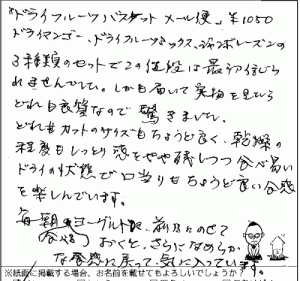 "ドライフルーツバスケット メール便" ¥1050
ドライマンゴー、ドライフルーツミックス、ジャンボレーズンの
3種類のセットでこの値段は最初信じら
れませんでした。しかも届いて実物を見たら
どれも良質なので驚きました。
どれもカットのサイズもちょうど良く、乾燥の
程度もしっとり感をやや残しつつ食べ易い
ドライの状態で口当りもちょうど良い食感
を楽しんでいます。
毎朝食べるヨーグルトに、前日にのせて
おくと、さらになめらか
な食感に戻って気に入っています。
※紙面に掲載する場合、お名前を載せてもよろしいでしょうか？